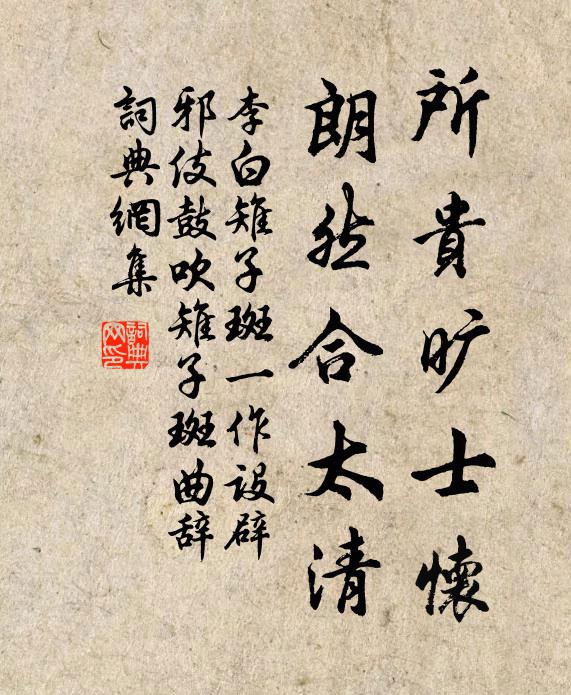 所貴旷士懷
朗然合太清
李白雉子斑一作设辟
邪伎鼓吹雉子斑曲辞
詞典網集
詞典网印